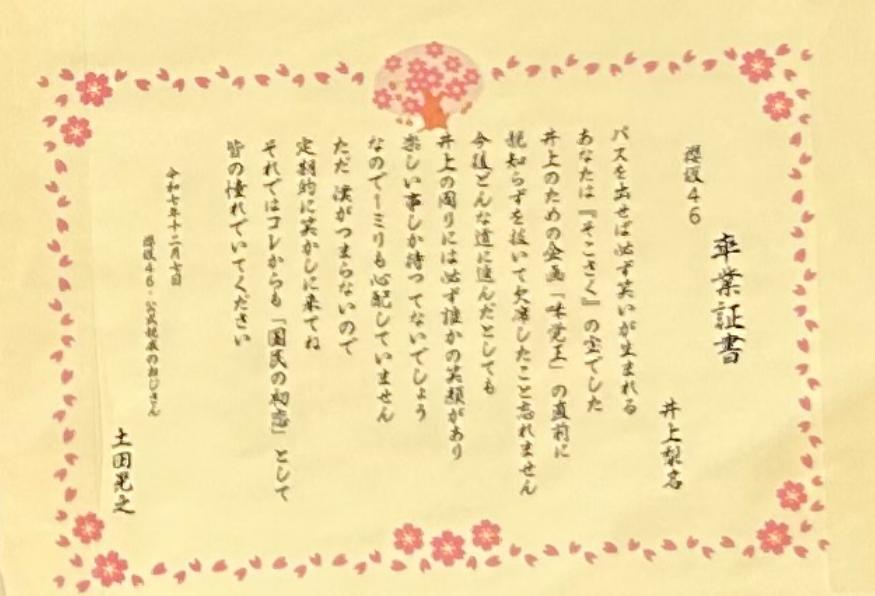 卒業証書
櫻坂46
井上梨名
パスを出せば必ず笑いが生まれる
あなたは『そこさく』の宝でした
井上のための企画「味覚王」の直前に
親知らずを抜いて欠席したこと忘れません
今後どんな道に進んだとしても
井上の周りには必ず誰かの笑顔があり
楽しい事しか待ってないでしょう
なので1ミリも心配していません
ただ 僕がつまらないので
定期的に笑かしに来てね
それではコレからも「国民の初恋」として
皆の憧れでいてください
令和七年十二月七日
櫻坂46・公式親戚のおじさん
土田晃之